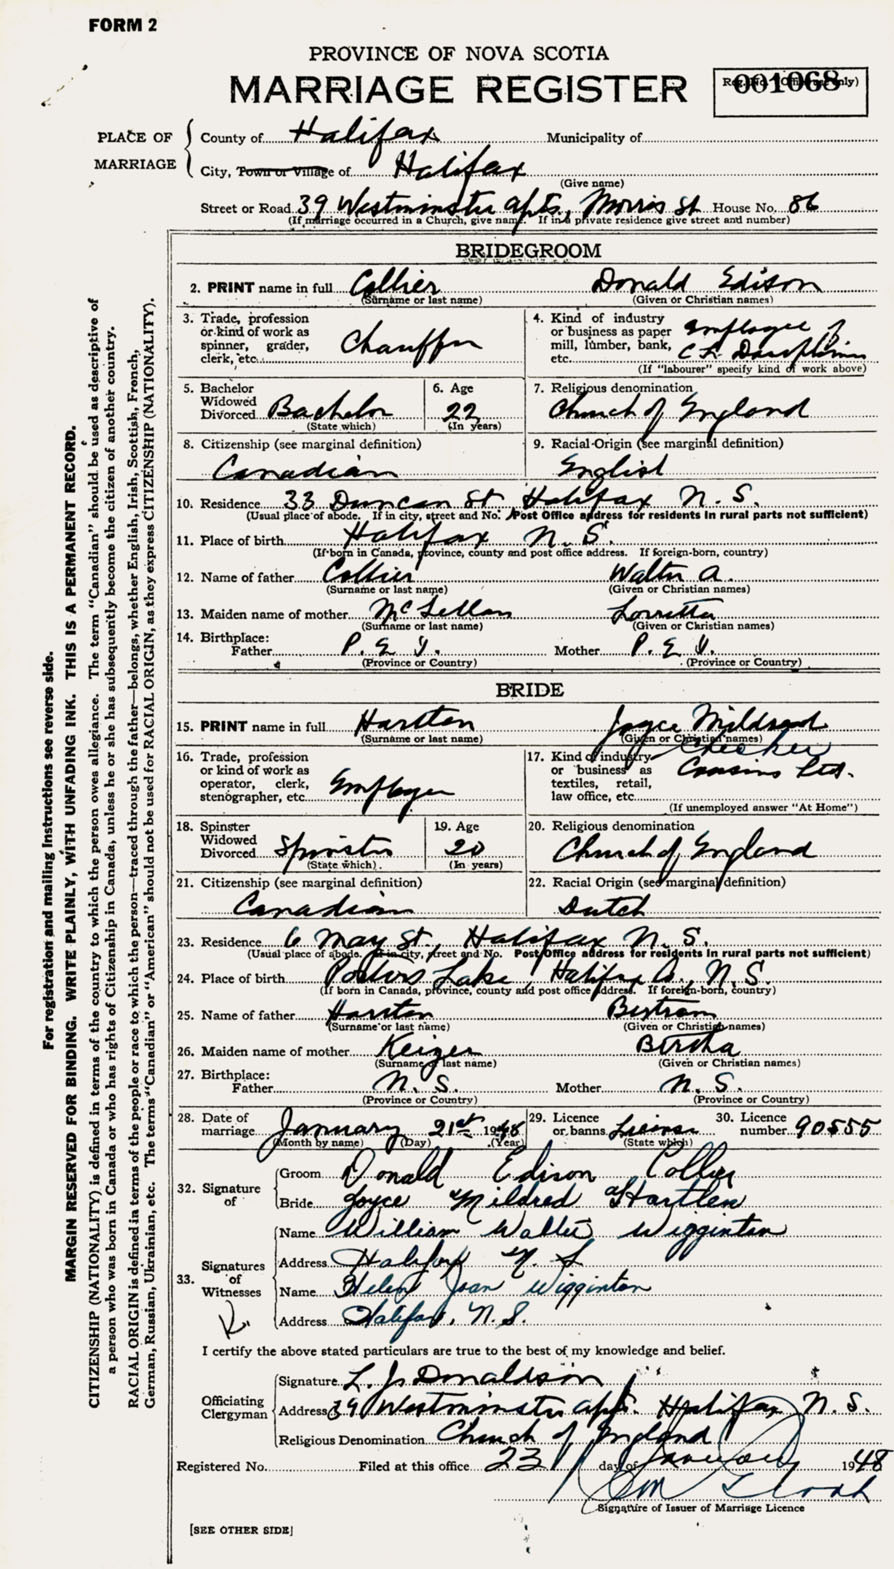 FORM 2
PROVINCE OF NOVA SCOTIA
MARRIAGE REGISTER
001068
PLACE OF MARRIAGE
County of Halifax Municipality of
City, Town or Village of Halifax
(Give name)
Street or Road 39 Westminster Apts, Morris St House No. 86
(If marriage occurred in a Church, give name. If in a private residence give street and number)
BRIDEGROOM
2. PRINT name in full Collier Donald Edison
(Surname or last name) (Given or Christian names)
3. Trade, profession or kind of work as spinner, grader, clerk, etc. Chauffer
4. Kind of industry or business as paper mill, lumber, bank, etc. employee of
(If "labourer" specify kind of work above)
5. Bachelor Widowed Divorced Bachelor
(State which)
6. Age 22
(In years)
7. Religious denomination
Church of England
8. Citizenship (see marginal definition)
Canadian
9. Racial-Origin (see marginal definition)
English
10. Residence 33 Duncan St Halifax N.S.
(Usual place of abode. If in city, street and No. Post Office address for residents in rural parts not sufficient)
11. Place of birth Halifax N.S.
(If born in Canada, province, county and post office address. If foreign-born, country)
12. Name of father Collier Walter A.
(Surname or last name) (Given or Christian names)
13. Maiden name of mother McLellan Lorretta
(Surname or last name) (Given or Christian names)
14. Birthplace:
Father P.E.I. Mother P.E.I.
(Province or Country) (Province or Country)
BRIDE
15. PRINT name in full Hartlen Joyce Mildread
(Surname or last name) (Given or Christian names)
16. Trade, profession or kind of work as operator, clerk, stenographer, etc. Employee
17. Kind of industry or business as textiles, retail, law office, etc. Checker
Cousins Ltd.
(If unemployed answer "At Home")
18. Spinster Widowed Divorced Spinster
(State which)
19. Age 20
(In years)
20. Religious denomination
Church of England
21. Citizenship (see marginal definition)
Canadian
22. Racial Origin (see marginal definition)
Dutch
23. Residence 6 May St., Halifax N.S.
(Usual place of abode. If in city, street and No. Post Office address for residents in rural parts not sufficient)
24. Place of birth Porters Lake, Halifax Co., N.S.
(If born in Canada, province, county and post office address. If foreign-born, country)
25. Name of father Hartlen Bertram
(Surname or last name) (Given or Christian names)
26. Maiden name of mother Keizer Bertha
(Surname or last name) (Given or Christian names)
27. Birthplace:
Father N.S. Mother N.S.
(Province or Country) (Province or Country)
28. Date of marriage January 21st 1948
(Month by name) (Day) (Year)
29. Licence or banns License
(State which)
30. Licence number 90555
32. Signature of
Groom Donald Edison Collier
Bride Joyce Mildred Hartlen
33. Signatures of Witnesses
Name William Walter Wigginton
Address Halifax N.S
Name Helen Joan Wigginton
Address Halifax, N.S.
I certify the above stated particulars are true to the best of my knowledge and belief.
Officiating Clergyman
Signature L. J. Donaldson
Address 39 Westminster Apt. Halifax N.S.
Religious Denomination Church of England
Registered No. Filed at this office 23 day of January 1948
Signature of Issuer of Marriage Licence
[SEE OTHER SIDE]
For registration and mailing instructions see reverse side.
MARGIN RESERVED FOR BINDING. WRITE PLAINLY, WITH UNFADING INK. THIS IS A PERMANENT RECORD.
CITIZENSHIP (NATIONALITY) is defined in terms of the country to which the person owes allegiance. The term "Canadian" should be used as descriptive of
a person who was born in Canada or who has rights of Citizenship in Canada, unless he or she has subsequently become the citizen of another country.
RACIAL ORIGIN is defined in terms of the people or race to which the person—traced through the father—belongs, whether English, Irish, Scottish, French,
German, Russian, Ukrainian, etc. The terms "Canadian" or "American" should not be used for RACIAL ORIGIN, as they express CITIZENSHIP (NATIONALITY).